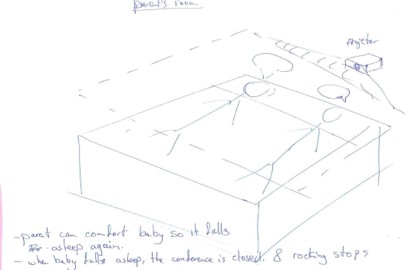 parent's room
projector
- parent can comfort baby so it falls
asleep again.
- when baby falls asleep, the conference is closed. & rocking stops